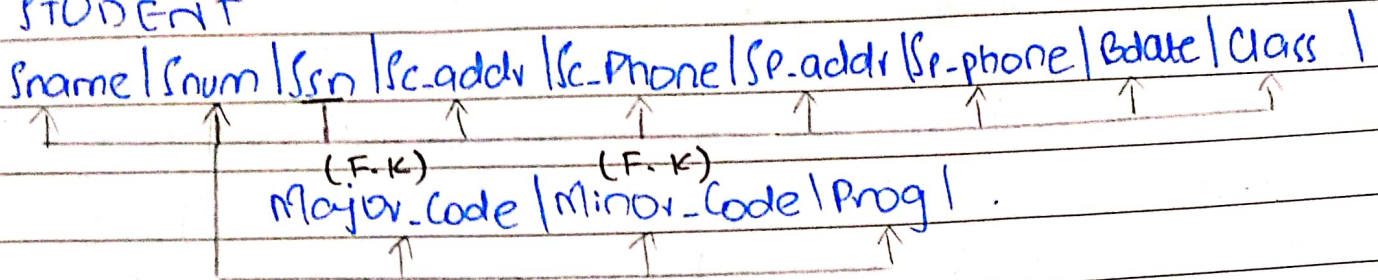 STUDENT
Sname | Snum | Ssn | Sc-addr | Sc-Phone | Sp-addr | Sp-phone | Bdate | Class |
(F.K) (F.K)
Major-Code | Minor-Code | Prog | .